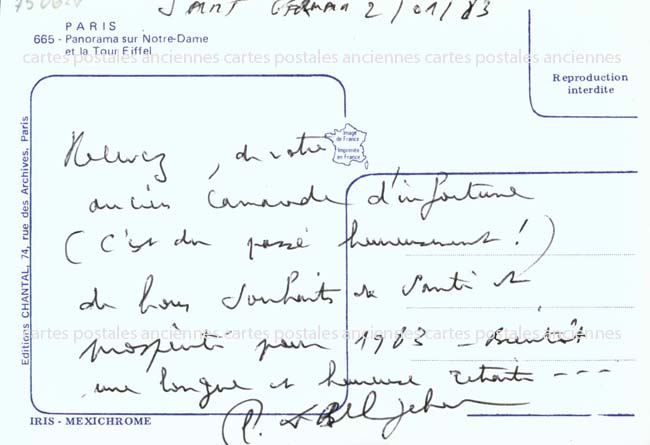 SAINT GERMAIN 2/01/83
PARIS
665 - Panorama sur Notre-Dame
et la Tour Eiffel
cartes postales anciennes cartes postales anciennes cartes postales anciennes
Reproduction
interdite
Editions CHANTAL, 74, rue des Archives, Paris
Image
de France
Imprimée
en France
Recevez, de votre
ancien camarade d'infortune
(C'est du passé heureusement !)
de bons souhaits de santé et
prospérité pour 1983 - Bientôt
une longue et heureuse retraite ---
cartes postales anciennes cartes postales anciennes cartes postales anciennes
IRIS - MEXICHROME